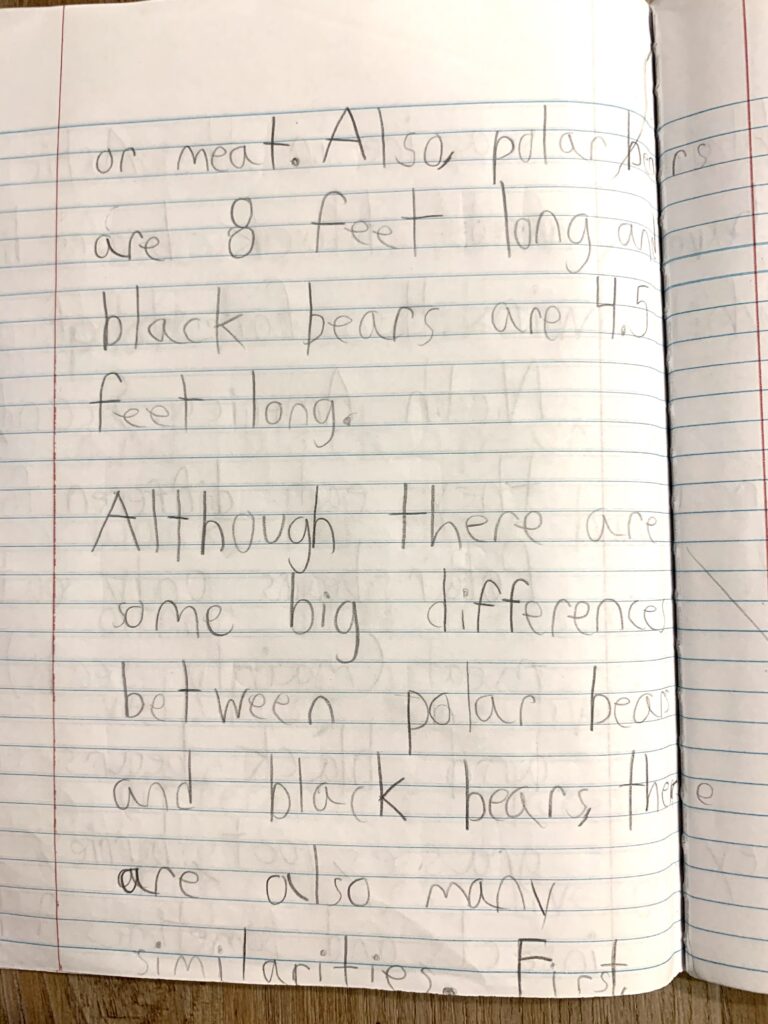 or meat. Also, polar bears
are 8 feet long and
black bears are 4.5
feet long.
Although there are
some big differences
between polar bears
and black bears, there
are also many
similarities. First,